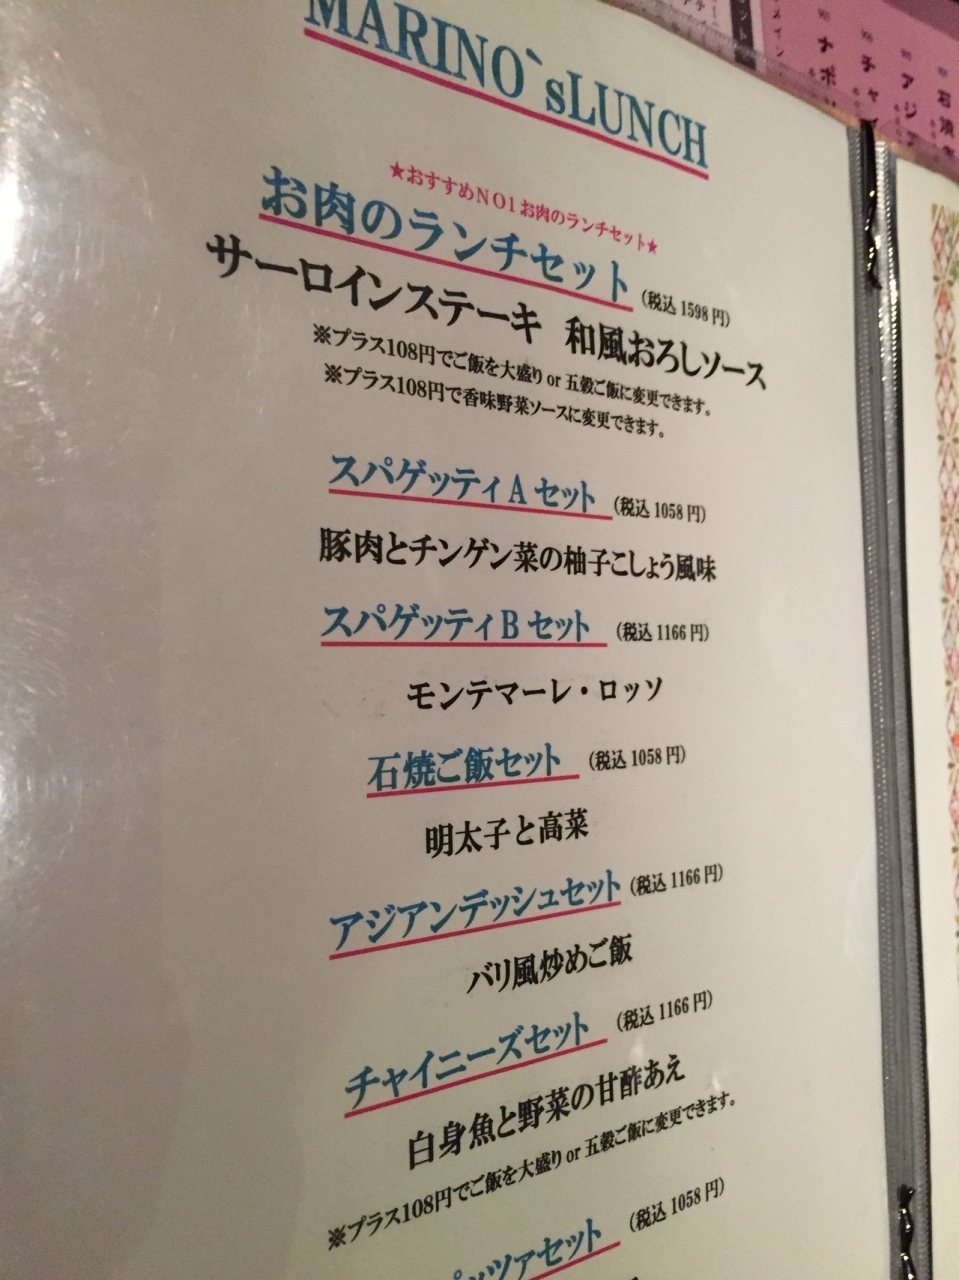 MARINO`sLUNCH
★おすすめNO1お肉のランチセット★
お肉のランチセット (税込1598円)
サーロインステーキ 和風おろしソース
※プラス108円でご飯を大盛り or 五穀ご飯に変更できます。
※プラス108円で香味野菜ソースに変更できます。
スパゲッティAセット (税込1058円)
豚肉とチンゲン菜の柚子こしょう風味
スパゲッティBセット (税込1166円)
モンテマーレ・ロッソ
石焼ご飯セット (税込1058円)
明太子と高菜
アジアンデッシュセット (税込1166円)
バリ風炒めご飯
チャイニーズセット (税込1166円)
白身魚と野菜の甘酢あえ
※プラス108円でご飯を大盛り or 五穀ご飯に変更できます。
ッツァセット (税込1058円)